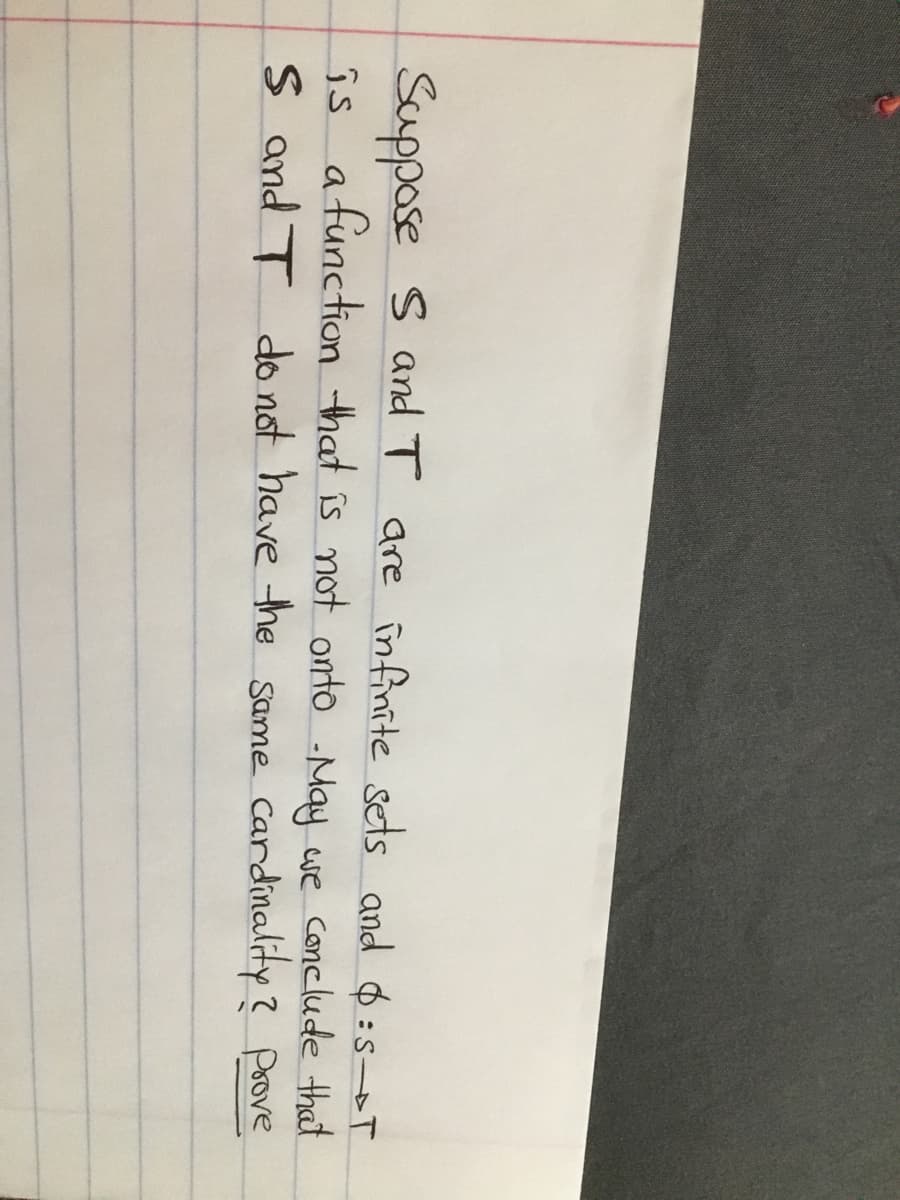 Suppose S and T are infinite sets and ϕ:S→T
is a function that is not onto. May we conclude that
S and T do not have the same cardinality? prove